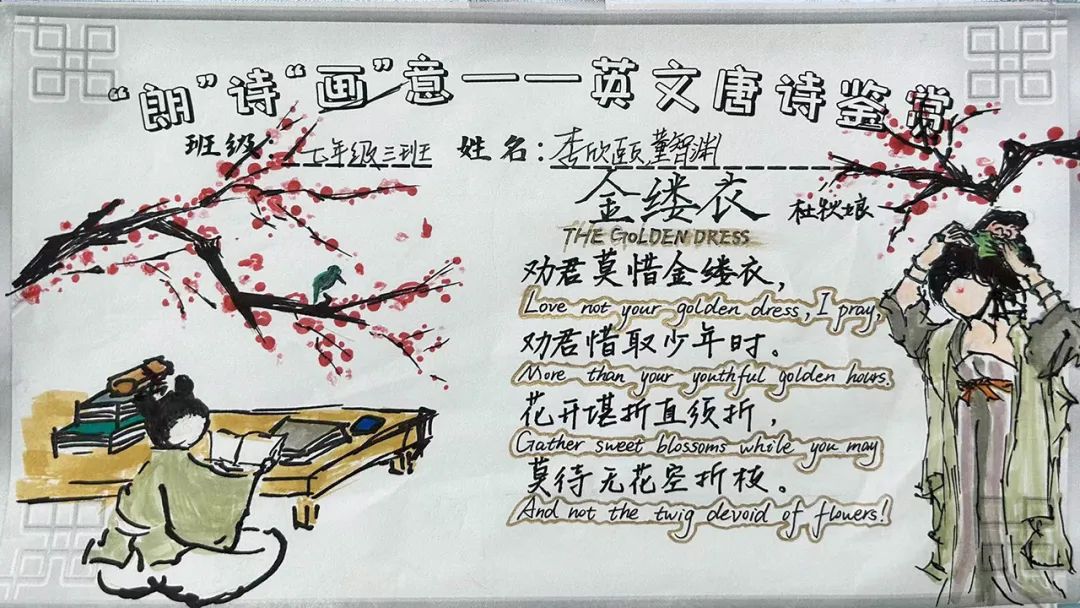 “朗”诗“画”意——英文唐诗鉴赏
班级：七年级三班 姓名：李欣颐 董智渊
金缕衣 杜秋娘
THE GOLDEN DRESS
劝君莫惜金缕衣，
Love not your golden dress, I pray,
劝君惜取少年时。
More than your youthful golden hours.
花开堪折直须折，
Gather sweet blossoms while you may
莫待无花空折枝。
And not the twig devoid of flowers!